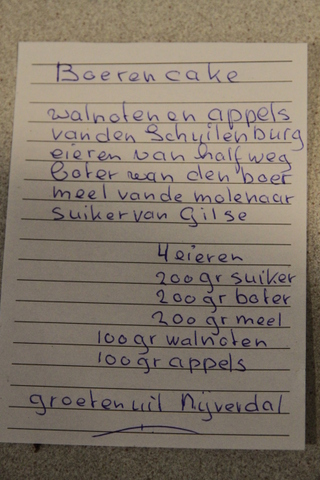 Boerencake
walnoten en appels
vanden Schuilenburg
eieren van halfweg
boter van den boer
meel vande molenaar
suiker van Gilse
4 eieren
200 gr suiker
200 gr boter
200 gr meel
100 gr walnoten
100 gr appels
groeten uit Nijverdal